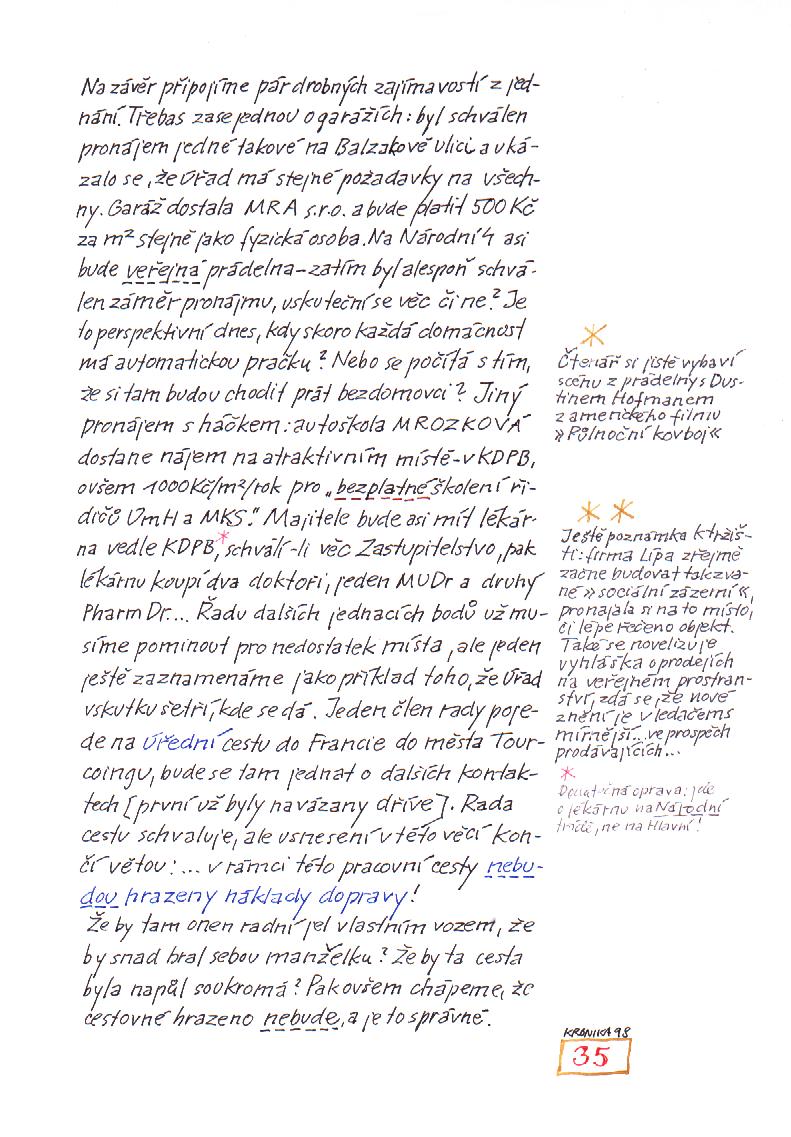 Na závěr připojíme pár drobných zajímavostí z jed-
nání. Třebas zase jednou o garážích: byl schválen
pronájem jedné takové na Balzakově ulici a uká-
zalo se, že Úřad má stejné požadavky na všech-
ny. Garáž dostala MRA s.r.o. a bude platit 500 Kč
za m² stejně jako fyzická osoba. Na Národní 4 asi
bude veřejná prádelna - zatím byl alespoň schvá-
len záměr pronájmu, uskuteční se věc či ne? Je
to perspektivní dnes, kdy skoro každá domácnost
má automatickou pračku? Nebo se počítá s tím,
že si tam budou chodit prát bezdomovci? Jiný
pronájem s háčkem: autoškola MROZKOVÁ
dostane nájem na atraktivním místě - v KDPB,
ovšem 1000 Kč/m²/rok pro „bezplatné školení ři-
dičů ÚmH a MKS." Majitele bude asi mít lékár-
na vedle KDPB,* schválí-li věc Zastupitelstvo, pak
lékárnu koupí dva doktoři, jeden MUDr a druhý
PharmDr... Řadu dalších jednacích bodů už mu-
síme pominout pro nedostatek místa, ale jeden
ještě zaznamenáme jako příklad toho, že Úřad
vskutku šetří, kde se dá. Jeden člen rady poje-
de na úřední cestu do Francie do města Tour-
coingu, bude se tam jednat o dalších kontak-
tech [první už byly navázany dříve]. Rada
cestu schvaluje, ale usnesení v této věci kon-
čí větou: ... v rámci této pracovní cesty nebu-
dou hrazeny náklady dopravy!
Že by tam onen radní jel vlastním vozem, že
by snad bral sebou manželku? Že by ta cesta
byla napůl soukromá? Pak ovšem chápeme, že
cestovné hrazeno nebude, a je to správné.
*
Čtenář si jistě vybaví
scénu z prádelny s Dus-
tinem Hofmanem
z amerického filmu
»Půlnoční kovboj«
* *
Ještě poznámka k tržiš-
ti: firma Lípa zřejmě
začne budovat takzva-
né »sociální zázemí«,
pronajala si na to místo,
či lépe řečeno objekt.
Také se novelizuje
vyhláška o prodejích
na veřejném prostran-
ství, zdá se, že nové
znění je v ledačems
mírnější... ve prospěch
prodávajících...
*
Dodatečná oprava: jde
o lékárnu na Národní
třídě, ne na Hlavní!
KRONIKA 98
35